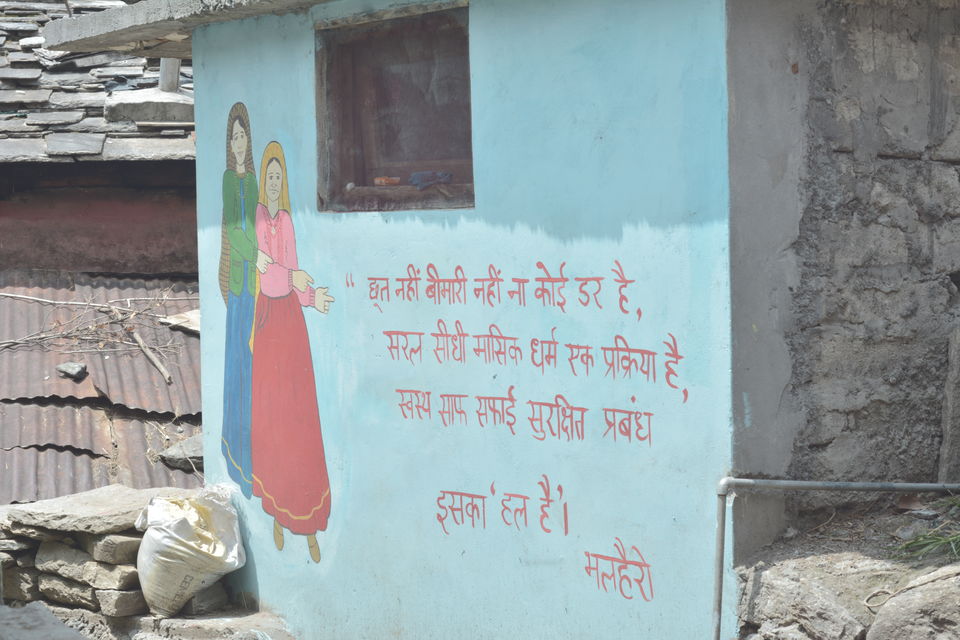 “ छूत नहीं बीमारी नहीं ना कोई डर है,
सरल सीधी मासिक धर्म एक प्रक्रिया है,
स्वस्थ साफ सफाई सुरक्षित प्रबंध
इसका ‘हल है’।
मलहैरो